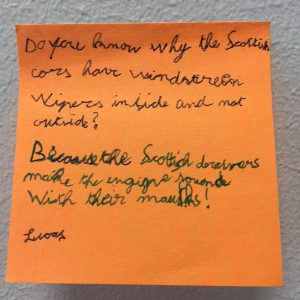 Do you know why the Scottish
cars have windscreen
wipers inside and not
outside?
Because the Scottish drivers
make the engine sounds
With their mouths!
Lucas